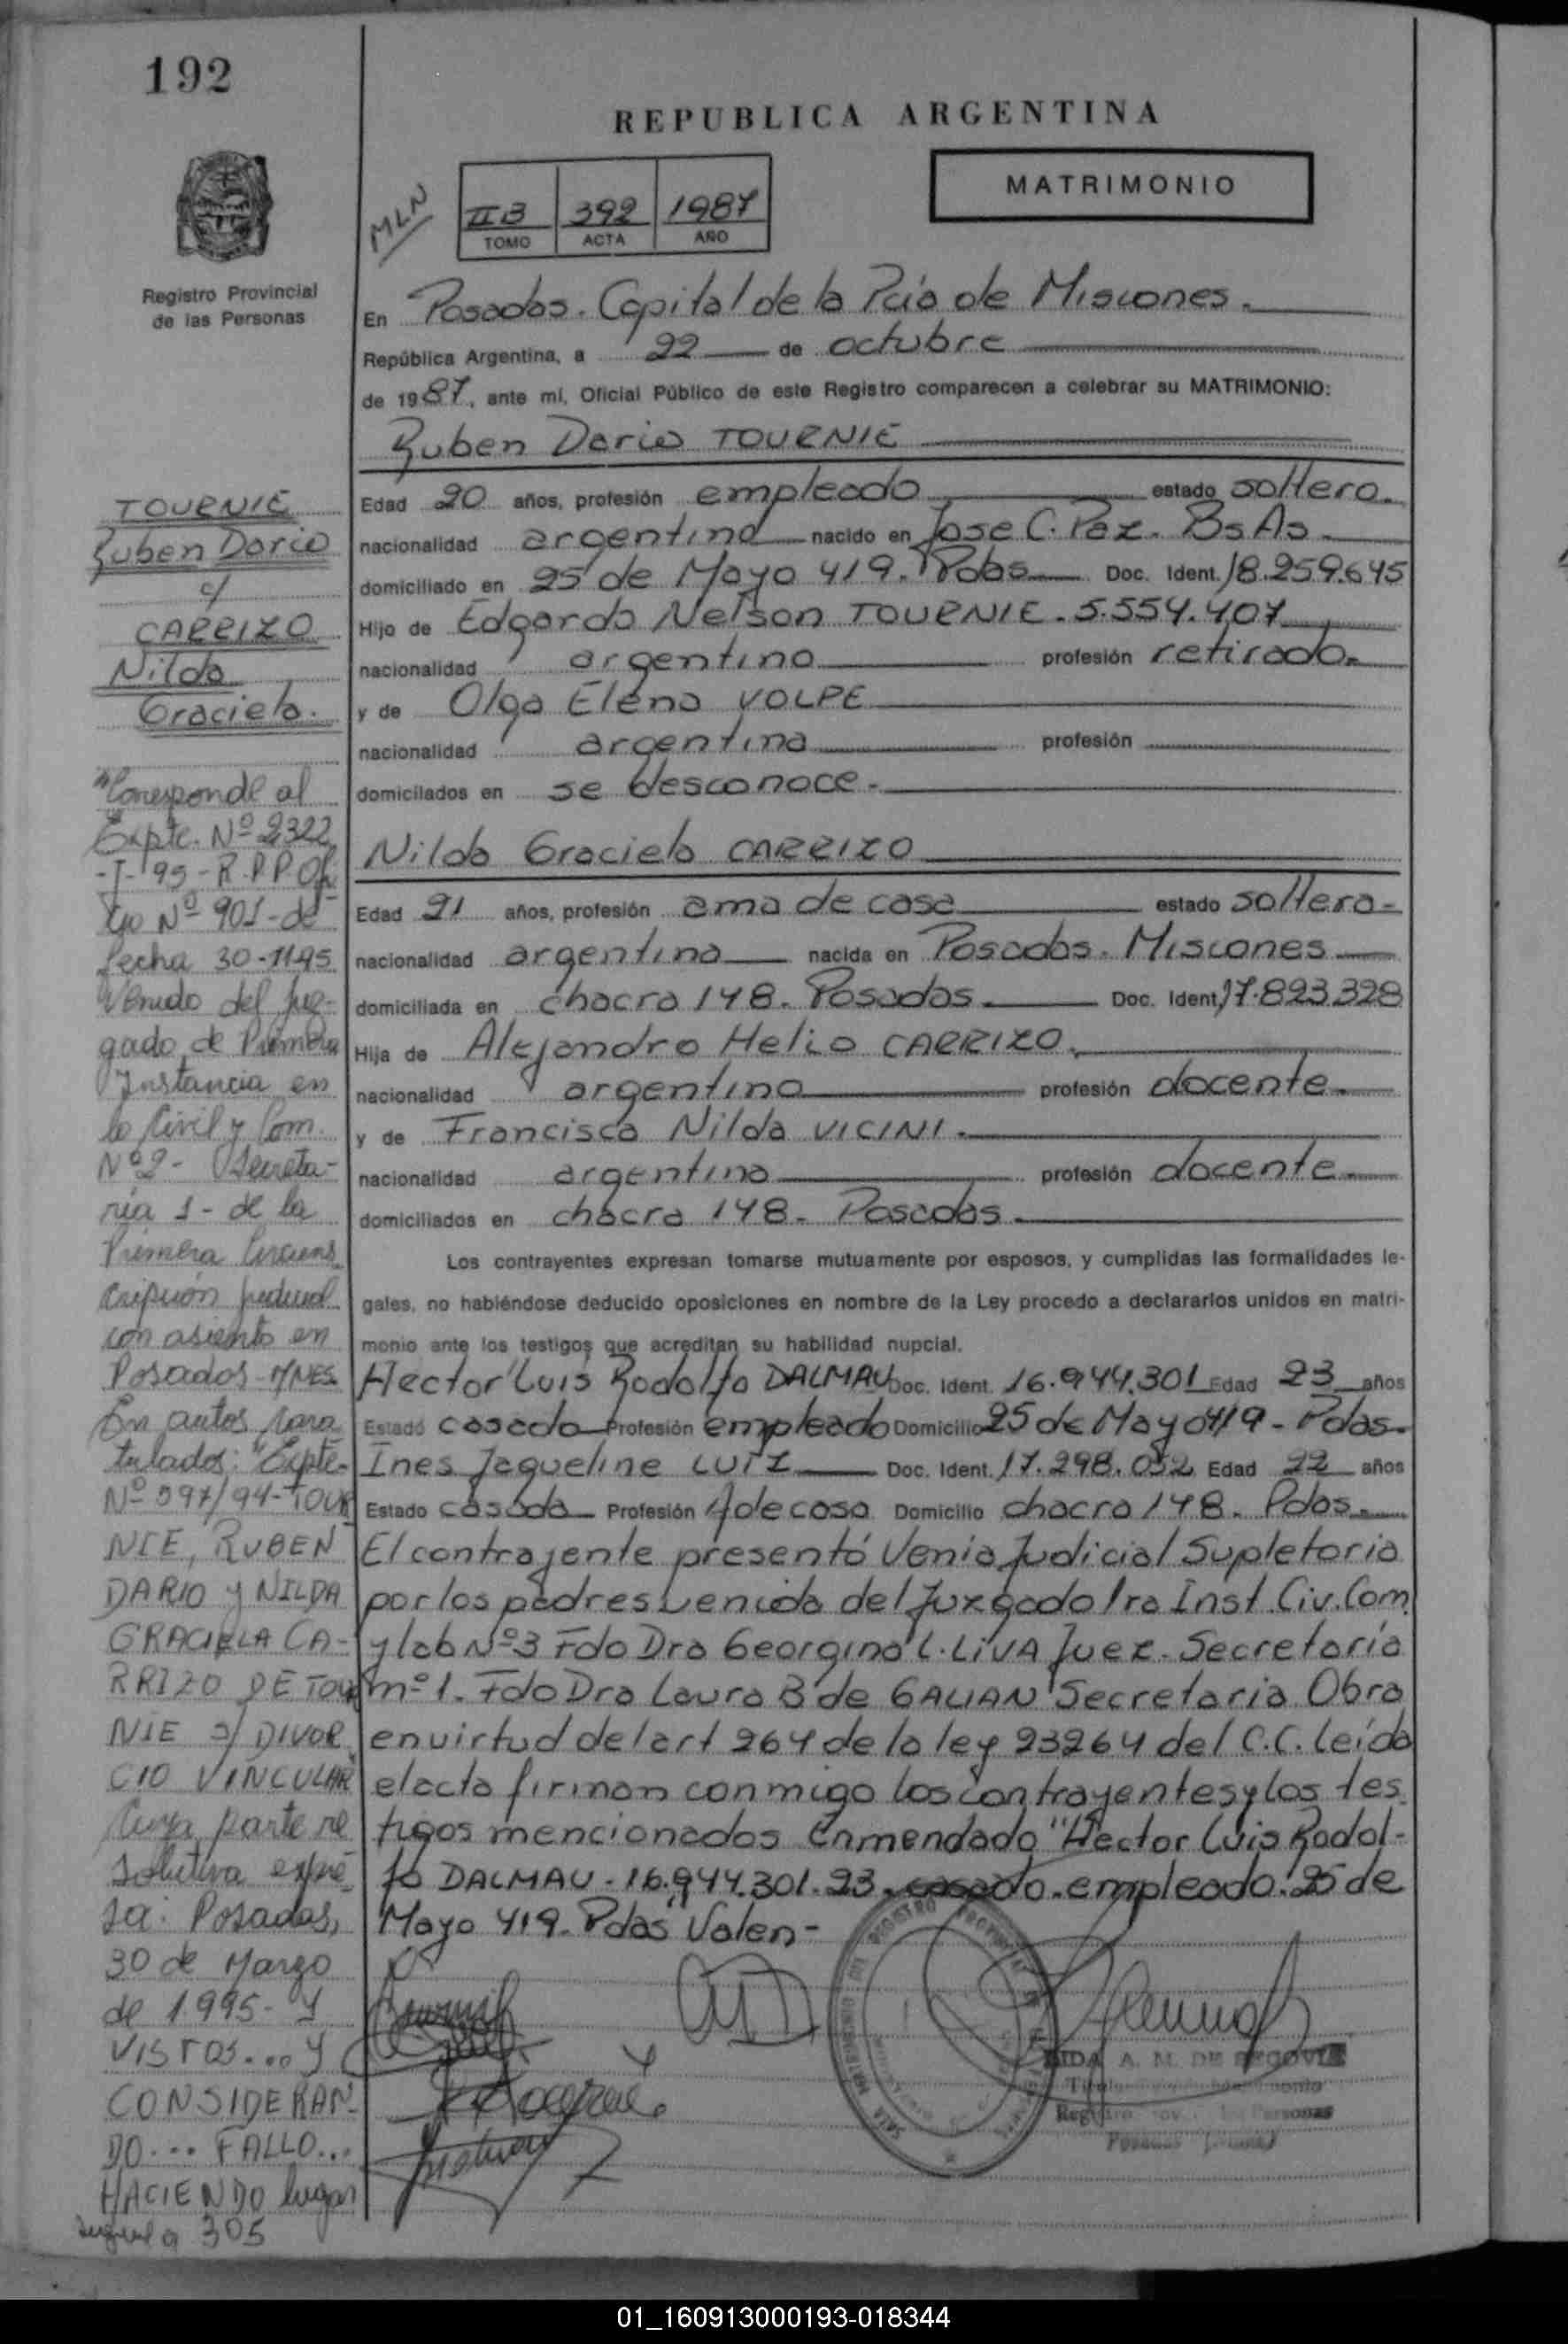 192
REPUBLICA ARGENTINA
MATRIMONIO
MLN
IIB 392 1987
TOMO ACTA AÑO
Registro Provincial
de las Personas
En Posadas. Capital de la Pcia de Misiones.
República Argentina, a 22 de octubre
de 1987, ante mí, Oficial Público de este Registro comparecen a celebrar su MATRIMONIO:
Ruben Dario TOURNIE
Edad 20 años, profesión empleado estado soltero.
nacionalidad argentina nacido en Jose C. Paz. Bs As.
domiciliado en 25 de Mayo 419. Pdas Doc. Ident. 18.259.645
Hijo de Edgardo Nelson TOURNIE. 5.554.407
nacionalidad argentina profesión retirado.
y de Olga Elena VOLPE
nacionalidad argentina profesión
domicilados en se desconoce.
Nilda Graciela CARRIZO
Edad 21 años, profesión ama de casa estado soltera-
nacionalidad argentina nacida en Posadas. Misiones
domiciliada en chacra 148. Posadas. Doc. Ident. 17.823.328
Hija de Alejandro Helio CARRIZO.
nacionalidad argentino profesión docente.
y de Francisca Nilda VICINI.
nacionalidad argentina profesión docente.
domiciliados en chacra 148. Posadas.
Los contrayentes expresan tomarse mutuamente por esposos, y cumplidas las formalidades le-
gales, no habiéndose deducido oposiciones en nombre de la Ley procedo a declararlos unidos en matri-
monio ante los testigos que acreditan su habilidad nupcial.
Hector Luis Rodolfo DALMAU Doc. Ident. 16.944.301 Edad 23 años
Estado casado Profesión empleado Domicilio 25 de Mayo 419 - Pdas.
Ines Jaqueline LUTZ Doc. Ident. 17.298.052 Edad 22 años
Estado casada Profesión A de casa Domicilio chacra 148. Pdas.
El contrayente presentó Venia Judicial Supletoria
por los padres venida del Juzgado 1ra Inst. Civ. Com.
y lab Nº3 Fdo Dra Georgina L. LIVA Juez. Secretaría
nº 1. Fdo Dra Laura B de GALIAN Secretaria Obra
en virtud del art 264 de la ley 23264 del C.C. Leída
el acta firman conmigo los contrayentes y los tes
tigos mencionados Enmendado "Hector Luis Rodol-
fo DALMAU - 16.944.301. 23. casado. empleado. 25 de
Mayo 419. Pdas" Valen-
TOURNIE
Ruben Dario
c/
CARRIZO
Nilda
Graciela.
"Corresponde al
Expte. Nº 2322
-T-95-R.P.P. Ofi
cio Nº 901-de
fecha 30-11-95
Venido del Juz-
gado de Primera
Instancia en
lo Civil y Com.
Nº 2- Secreta-
ría 1- de la
Primera Circuns
cripción judicial
con asiento en
Posadas-MNES.
En autos cara
tulados: "Expte-
Nº 597/94-TOUR
NIE, RUBEN
DARIO y NILDA
GRACIELA CA-
RRIZO DE TOUR
NIE s/ DIVOR
CIO VINCULAR
Cuya parte re
solutiva expre
sa: Posadas,
30 de Marzo
de 1.995- Y
VISTOS... Y
CONSIDERAN-
DO... FALLO...
HACIENDO lugar
sigue a 305
A. M. DE SEGOVIA
01_160913000193-018344